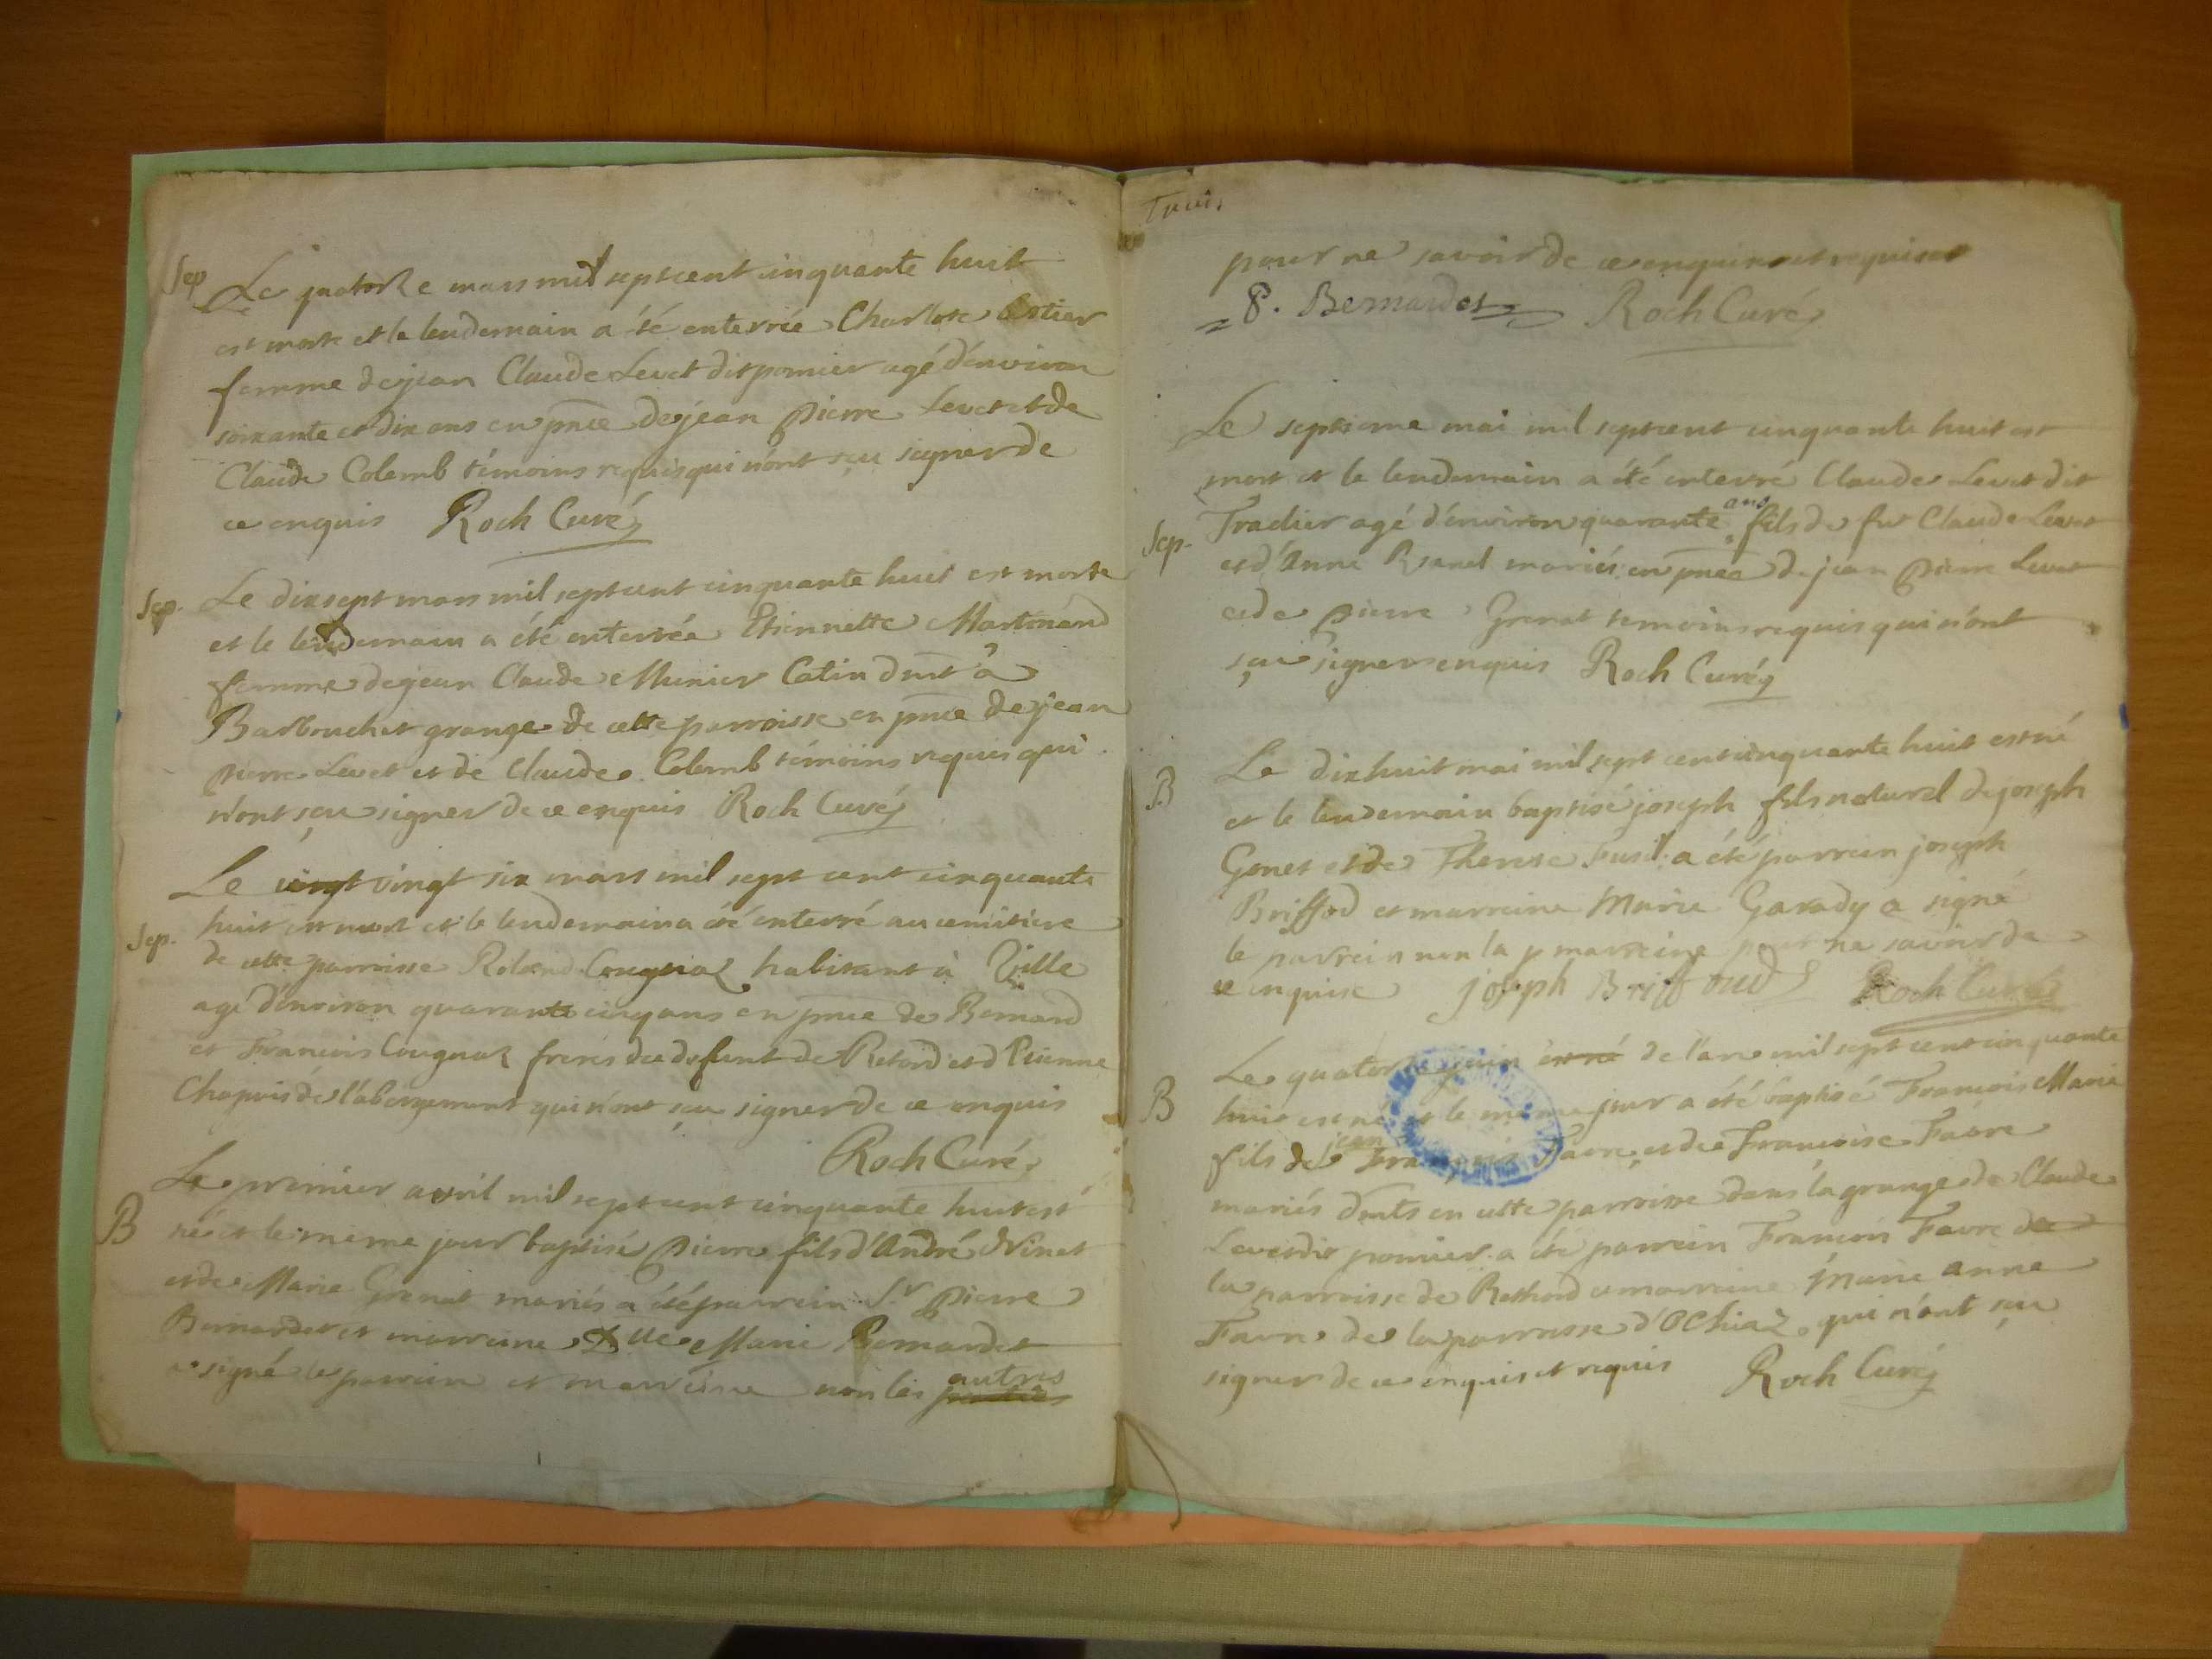 Sep
Le quatorze mars mil sept cent cinquante huit
est morte et le lendemain a été enterrée Charlote
femme de jean Claude Levet dit pomier agé d'environ
soixante et dix ans en pnce de jean Pierre Levet et de
Claude Colomb témoins requis qui n'ont sçu signer de
ce enquis Roch Curé
Sep.
Le dix sept mars mil sept cent cinquante huit est morte
et le lendemain a été enterrée Etiennette Martinand
femme de jean Claude Munier Catin dmt à
Barbouchet grange de cette parroisse en pnce de jean
pierre Levet et de Claude Colomb témoins requis qui
n'ont sçu signer de ce enquis Roch Curé
Le vingt vingt six mars mil sept cent cinquante
Sep.
huit est mort et le lendemain a été enterré au cemitiere
de cette parroisse Roland Cougnaz habitant à Ville
agé d'environ quarante cinq ans en pnce de Bernard
et François Cougnaz freres du defunt de Retord et d'Etienne
Chapuis de l'abergement qui n'ont sçu signer de ce enquis
Roch Curé
B
Le premier avril mil sept cent cinquante huit est
né et le même jour baptisé Pierre fils d'André
et de Marie Grenat mariés a été parrein Sr Pierre
Bernardet et marreine Dlle Marie Bernardet
a signé le parrein et marreine non les autres

pour ne savoir de ce enquis et requises
P. Bernardet Roch Curé
Le septieme mai mil sept cent cinquante huit est
mort et le lendemain a été enterré Claude Levet dit
Sep.
Tradier agé d'environ quarante ans fils de fut Claude Levet
et d'Anne mariés en pnce de jean Pierre Levet
et de Pierre Grenat temoins requis qui n'ont
sçu signer enquis Roch Curé
B
Le dix huit mai mil sept cent cinquante huit est né
et le lendemain baptisé joseph fils naturel de joseph
Gonet et de Therese Fusil a été parrein joseph
Briffod et marreine Marie Gavady a signé
le parrein non la p marreine pour ne savoir de
ce enquise joseph Briffoud Roch Curé
B
Le quatorze juin est né de l'an mil sept cent cinquante
huit est né et le même jour a été baptisé François Marie
fils de jean François Favre et de Françoise Favre
mariés dmts en cette parroisse dans la grange de Claude
Levet dit pomier a été parrein François Favre de
la parroisse de Rethord et marreine Marie anne
Favre de la parroisse d'Ochiaz qui n'ont sçu
signer de ce enquis et requis Roch Curé